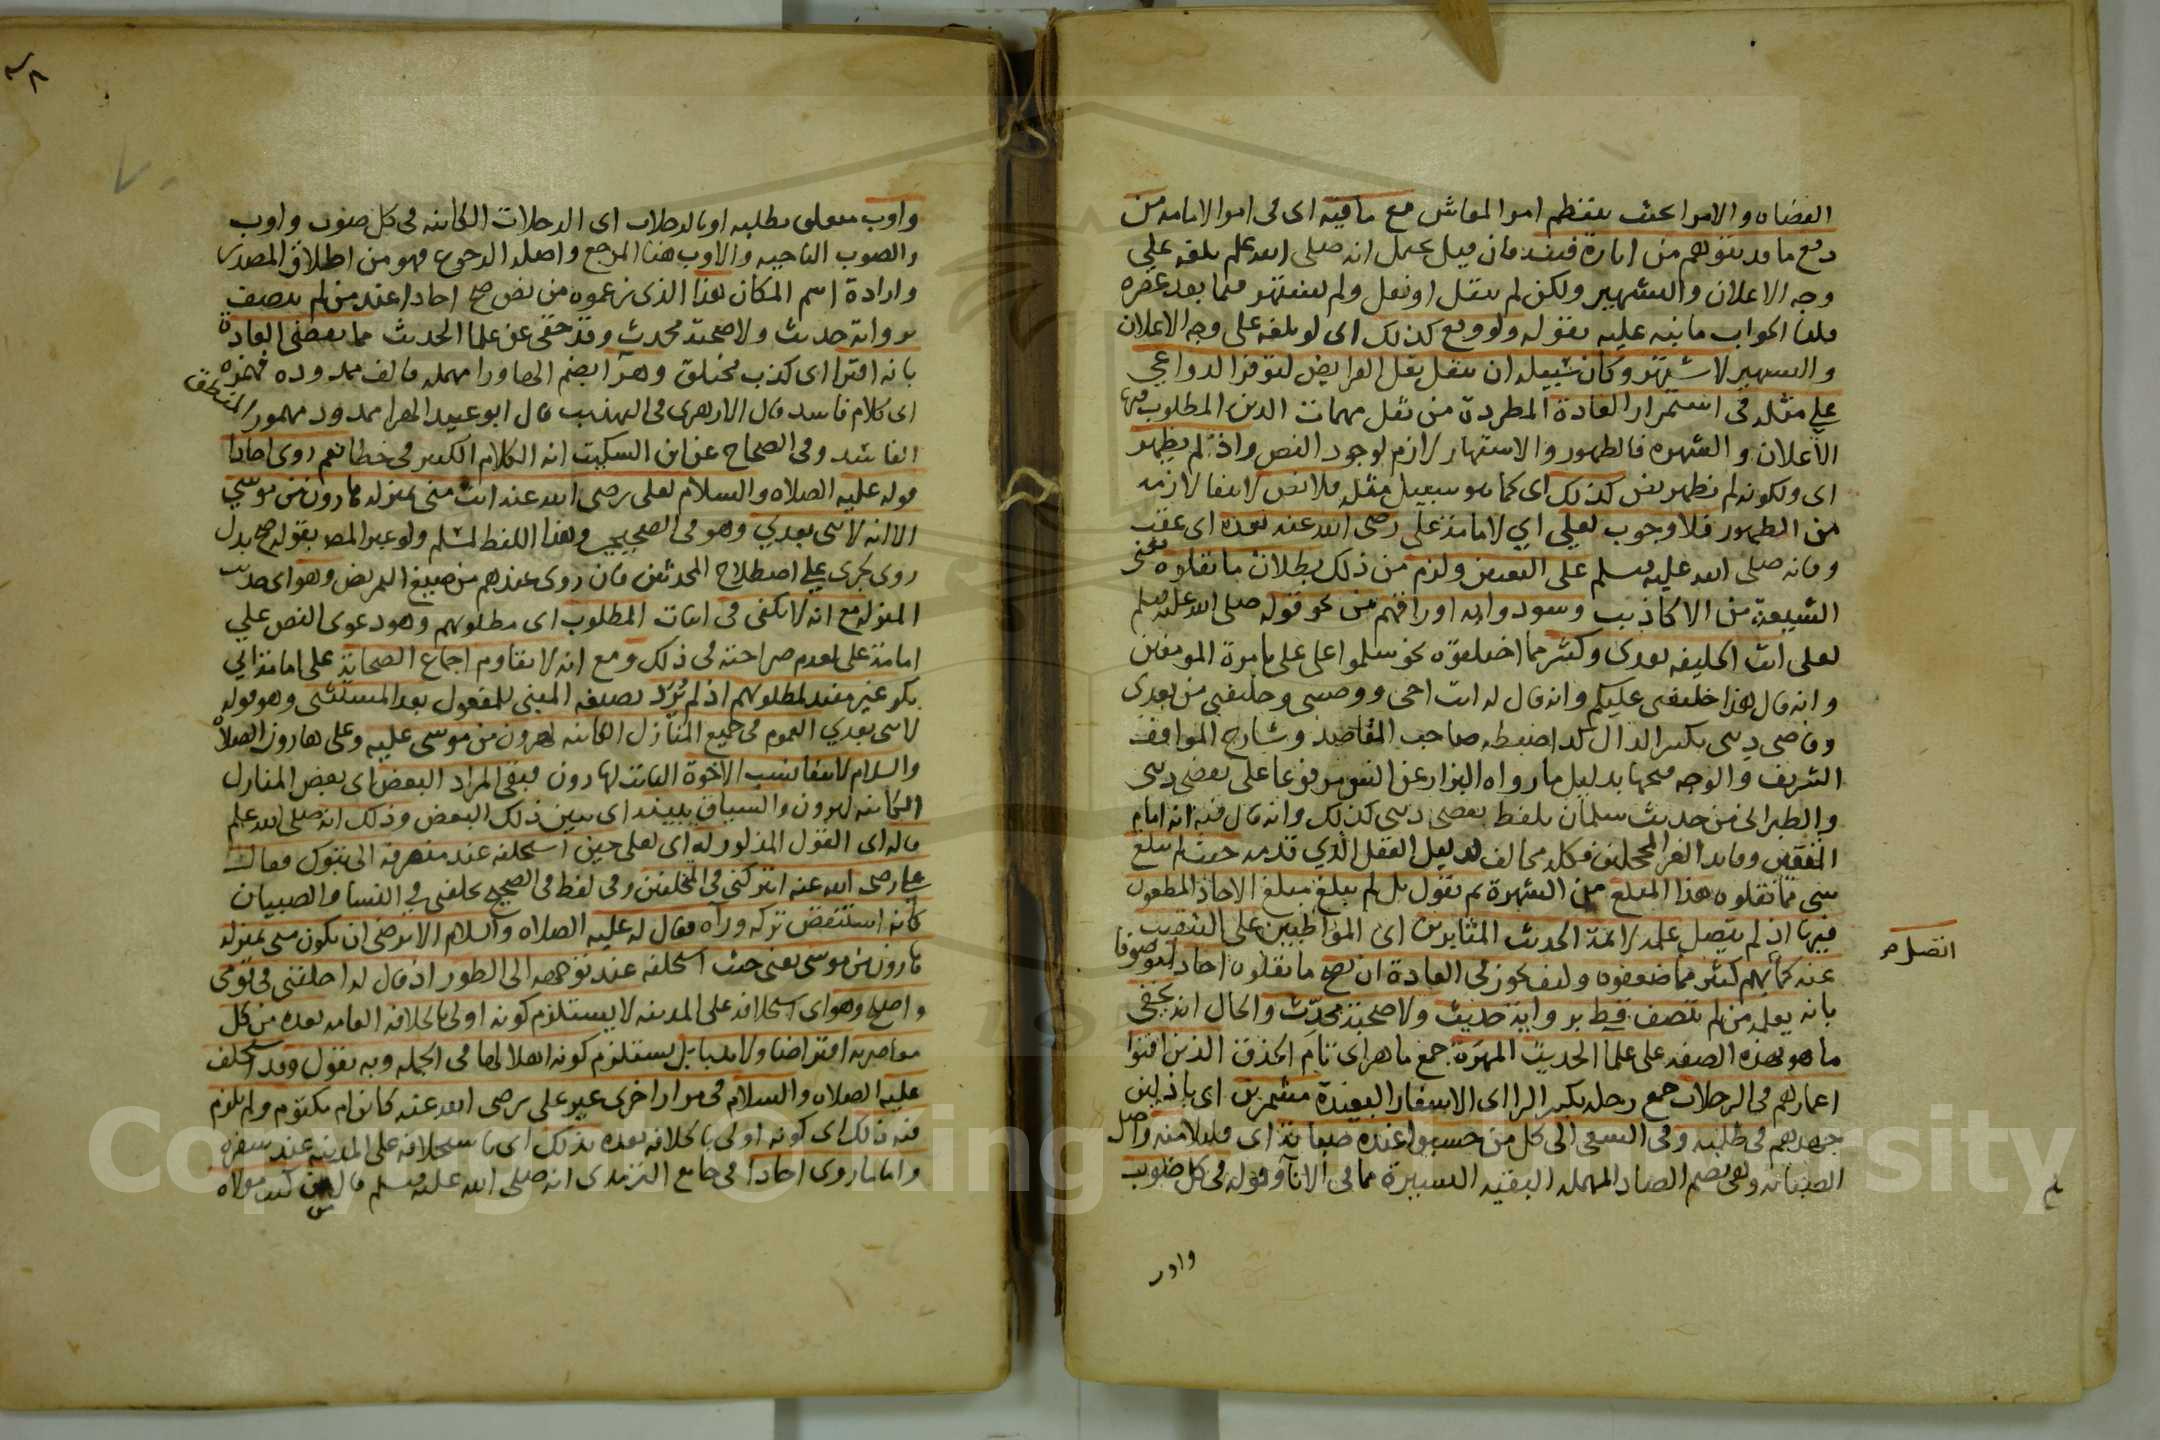 القضاه والامرا بحيث ينتظم امر المعاش مع ما فيه اى فى امر الامامه من
دفع ما قد يتوهم من اثارة فتنه فان قيل يحتمل انه صلى الله عليه وسلم بلغه على
وجه الاعلان والتشهير ولكن لم ينقل او نقل ولم يشتهر فيما بعد عصره
قلنا الجواب ما نبه عليه بقوله ولو وقع كذلك اى لو بلغه على وجه الاعلان
والتشهير لاشتهر وكان سبيله ان ينقل نقل الفرايض لتوفر الدواعي
علي مثله فى استمرار العادة المطردة من نقل مهمات الدين المطلوب فيها
الاعلان والشهره فالظهور والاشتهار لازم لوجود النص واذ لم يظهر
اى ولكونه لم يظهر نص كذلك اى كما هو سبيل مثله فلا نص لانتفا لازمه
من الظهور فلا وجوب لعلي اي لامامة علي رضى الله عنه بعده اى عقب
وفاته صلى الله عليه وسلم على التعيين ولزم من ذلك بطلان ما نقلوه يعنى
الشيعة من الاكاذيب وسودوا به اوراقهم من نحو قوله صلى الله عليه وسلم
لعلى انت الخليفه بعدى وكثير مما اختلقوه نحو سلموا على على بامرة المومنين
وانه قال هذا خليفتى عليكم وانه قال له انت اخى ووصيى وخليفتى من بعدى
وقاضى دينى بكسر الدال كذا ضبطه صاحب المقاصد وشارح المواقف
الشريف والاوجه فتحها بدليل ما رواه البزار عن انس مرفوعا على يقضى دينى
والطبرانى من حديث سلمان بلفظ يقضى دينى كذلك وانه قال فيه انه امام
المتقين وقايد الغر المحجلين فكله مخالف لدليل العقل الذي قدمه حيث لم يبلغ
شى مما نقلوه هذا المبلغ من الشهرة ثم نقول بل لم يبلغ مبلغ الاحاد المطعون
فيها اذ لم يتصل علمه لائمة الحديث المثابرين اى المواظبين على التنقيب
اتصل م
عنه كما بهم كثير مما ضعفوه وكيف يجوز فى العادة ان يصح ما نقلوه احادا موصوفا
بانه يعلمه من لم يتصف قط برواية حديث ولا صحبة محدّث والحال انه يخفى
ما هو بهذه الصفه على علما الحديث المهرة جمع ماهر اى تام الحذق الذين افنوا
اعمارهم فى الرحلات جمع رحله بكسر الرا اى الاسفار البعيدة مشمرين اى باذلين
جهدهم فى طلبه وفى السعى الى كل من حسبوا عنده صبابة اى قليلا منه واصل
الصبابه وهى بضم الصاد المهمله البقيه اليسيرة مما فى الاناء وقوله فى كل صوب
واوب
واوب متعلق بطلبه او بالرحلات اى الرحلات الكائنه فى كل صوب واوب
والصوب الناحيه والاوب هنا المرجع واصله الرجوع فهو من اطلاق المصدر
وارادة اسم المكان هذا الذى زعموه من نص صح احادا عند من لم يتصف
برواية حديث ولا صحبة محدث وقد خفى عن علما الحديث مما تقضى العادة
بانه افترا اى كذب مختلق وهرآ بضم الها ورا مهمله فالف ممدوده فهمزه
اى كلام فاسد قال الازهرى فى التهذيب قال ابو عبيد الهرا ممدود مهموز المنطق
الفاسد وفى الصحاح عن ابن السكيت انه الكلام الكثير فى خطا نعم روى احادا
قوله عليه الصلاه والسلام لعلى رضى الله عنه انت منى بمنزله هارون من موسي
الا انه لا نبى بعدي وهو فى الصحيحين وهذا اللفظ لمسلم ولو عبر المصـ بقوله صح بدل
روى لجرى علي اصطلاح المحدثين فان روى عندهم من صيغ التمريض وهو اى حديث
المنزله مع انه لا يكفى فى اثبات المطلوب اى مطلوبهم وهو دعوى النص علي
امامة على لعدم صراحته فى ذلك ومع انه لا يقاوم اجماع الصحابة على امامة ابي
بكر غير مفيد لمطلوبهم اذ لم يُرَد بصيغه المبنى للمفعول بعد المستثنى وهو قوله
لا نبى بعدي العموم فى جميع المنازل الكائنه لهرون من موسى عليه وعلى هارون الصلاة
والسلام لانتفا نسب الاخوة الثابت لهارون فبقى المراد البعض اى بعض المنازل
الكائنه لهرون والسياق يبينه اى يبين ذلك البعض وذلك انه صلى الله عليه وسلم
قاله اى القول المذكور له اى لعلى حين استخلفه عند منصرفه الى تبوك فقال
علي رضى الله عنه اتتركنى فى المخلفين وفى لفظ فى الصحيح تخلفنى في النسا والصبيان
كانه استنقص تركه ورآه فقال له عليه الصلاه والسلام الا ترضى ان تكون منى بمنزله
هارون من موسى يعنى حيث استخلفه عند توجهه الى الطور اذ قال له اخلفنى فى قومى
واصلح وهو اى استخلافه على المدينه لا يستلزم كونه اولى بالخلافه العامه بعده من كل
معاصريه افتراضا ولا ندبا بل يستلزم كونه اهلا لها فى الجمله وبه نقول وقد استخلف
عليه الصلاه والسلام فى مرار اخرى غير على رضى الله عنه كابن ام مكتوم ولم يلزم
فيه ذلك اى كونه اولى بالخلافه بعده بذلك اى باستخلافه على المدينه عند سفره
واما ما روى احادا فى جامع الترمذى انه صلى الله عليه وسلم قال من كنت مولاه